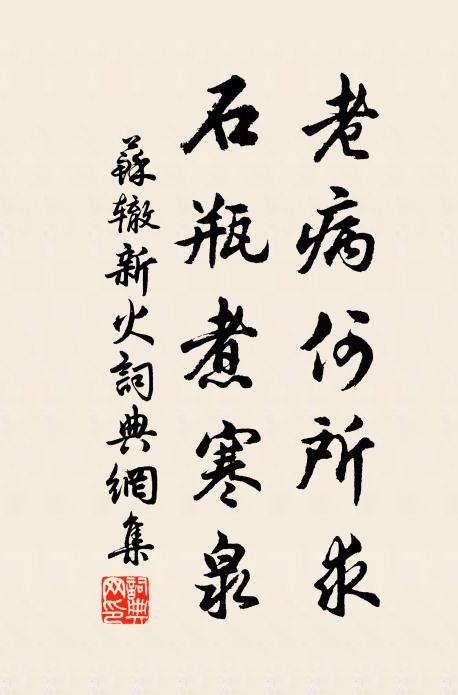 老病何所求
石瓶煮寒泉
蘇辙新火詞典網集
詞典
网印